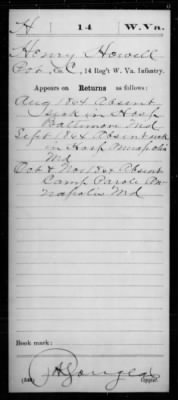 H 14 W. Va.
Henry Howell
Pvt, Co. C, 14 Reg't W. Va. Infantry.
Appears on Returns as follows:
Aug 1864 Absent
sick in Hosp
Baltimore Md
Sept 1864 Absent sick
in Hosp Annapolis
Md
Oct & Nov 1864 Absent
Camp Parole An-
napolis Md
Book mark:
(546) Copyist.